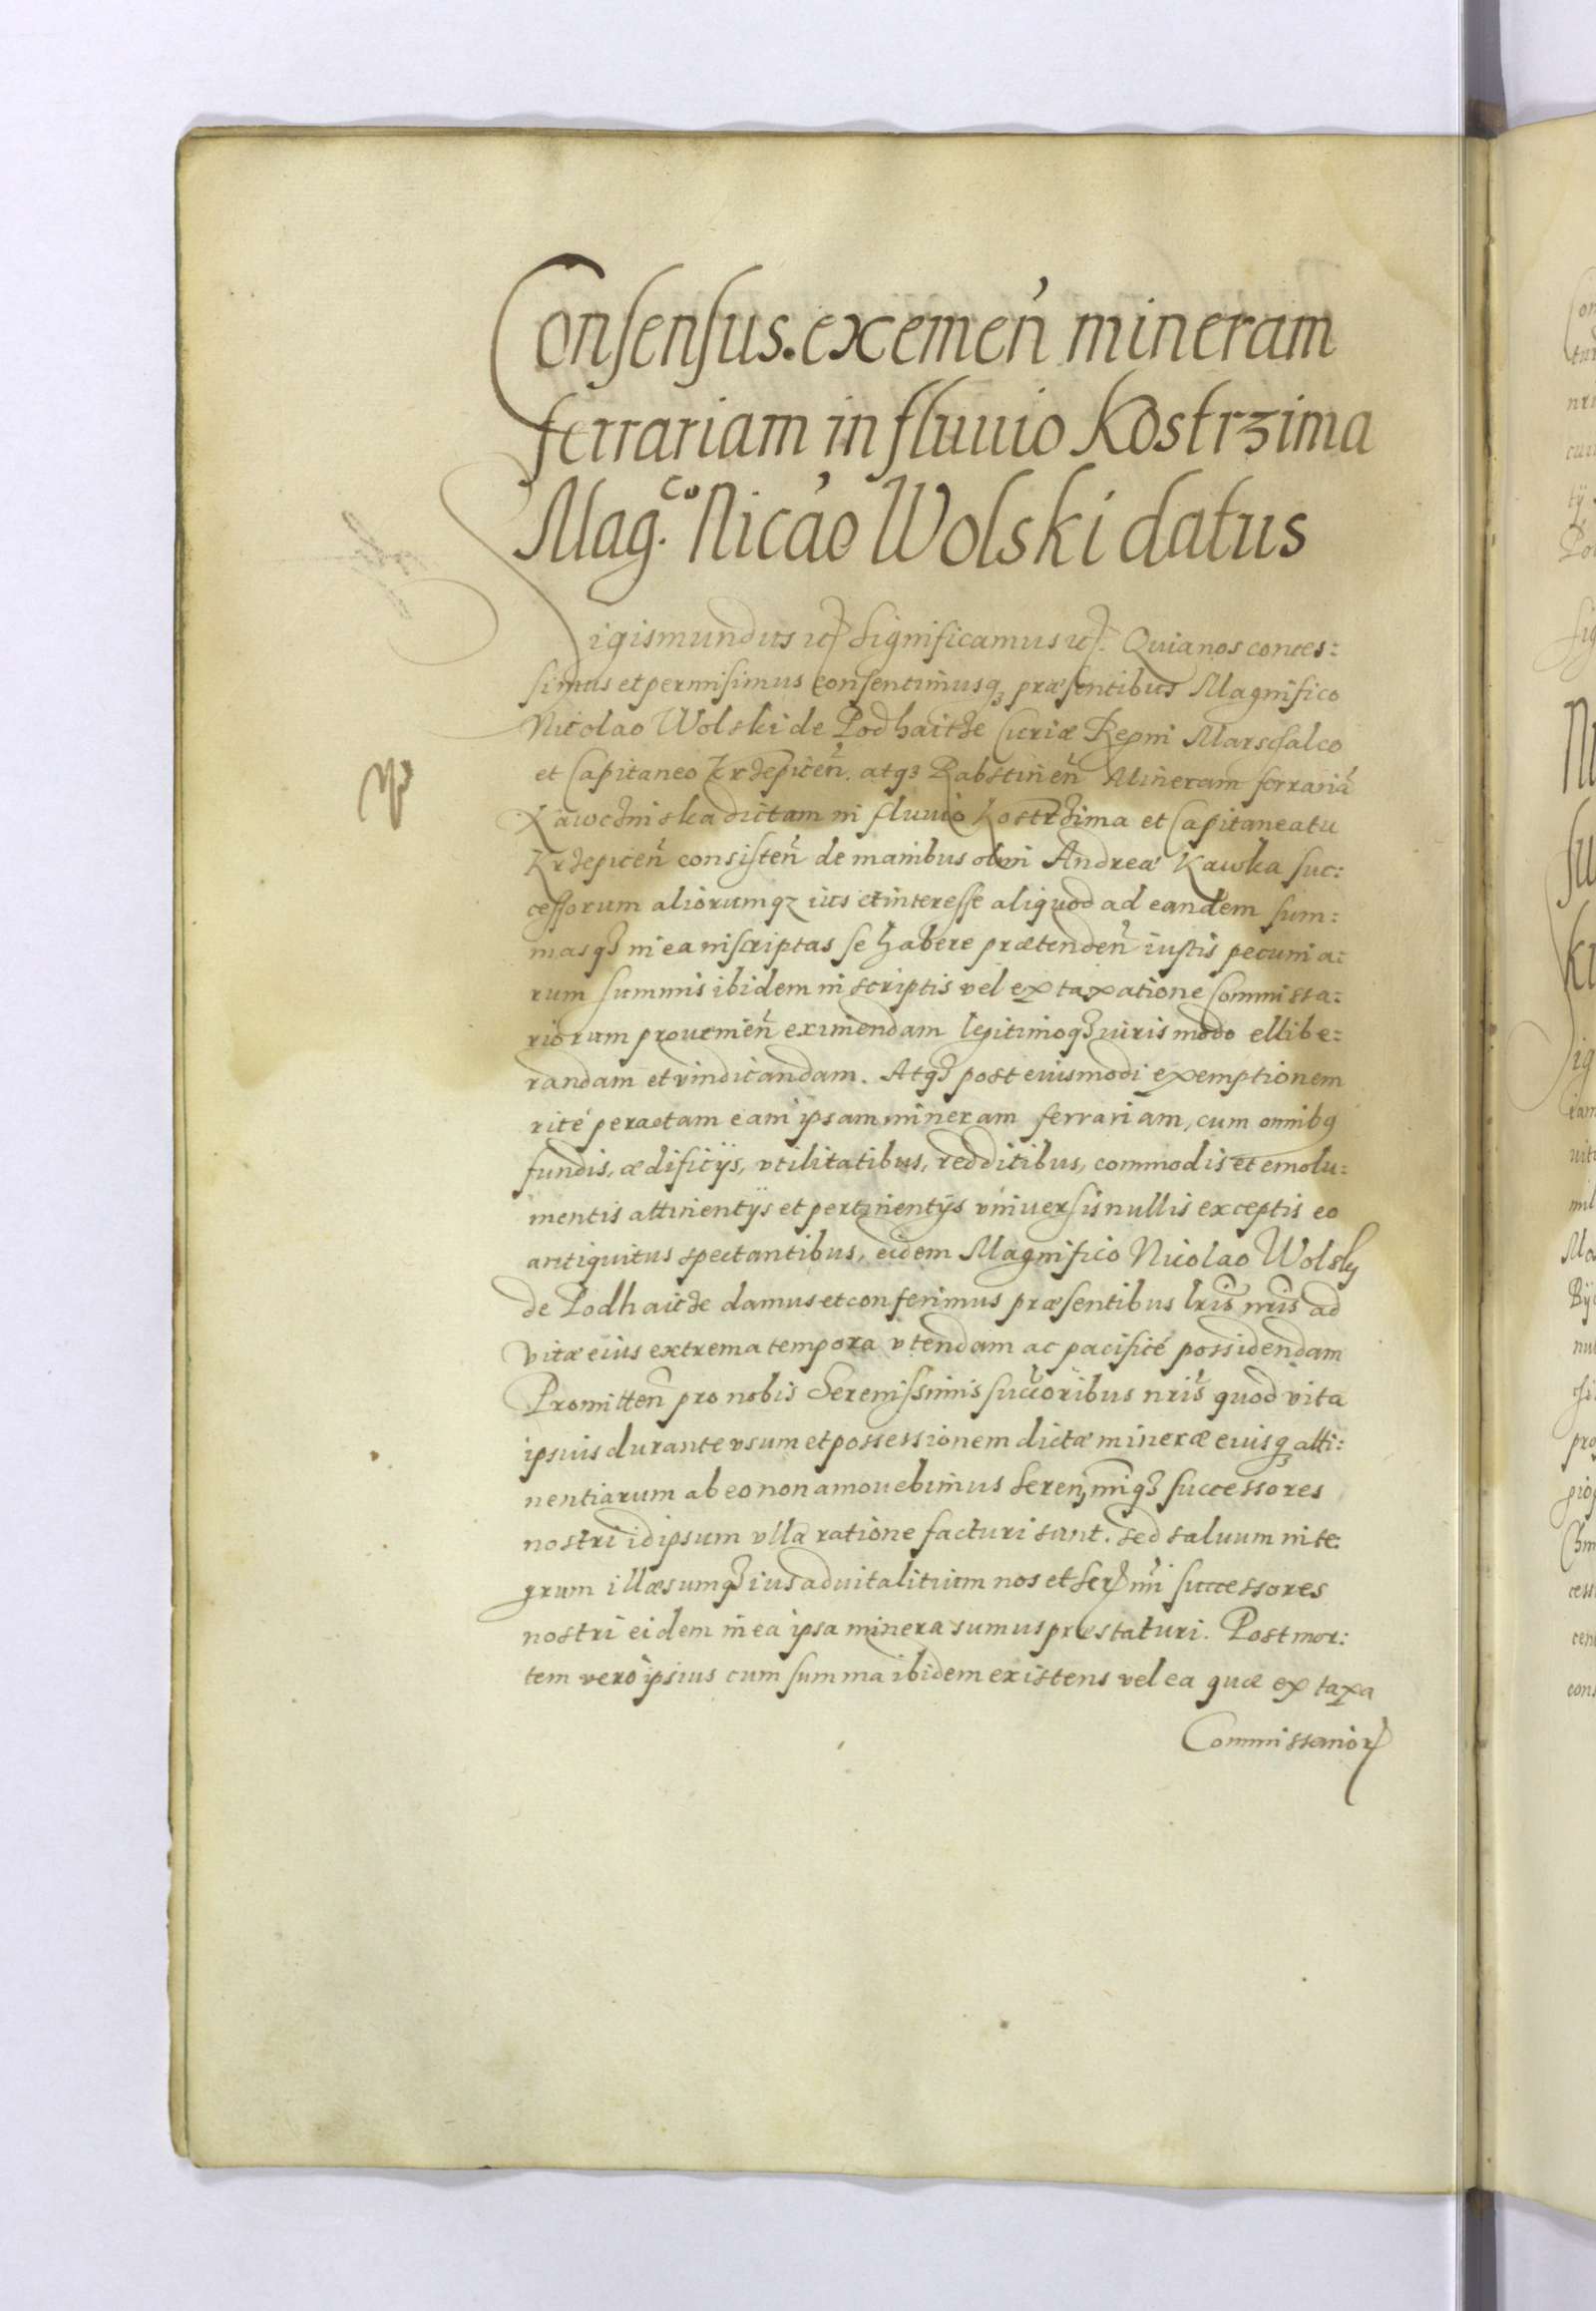 Consensus. exemeń mineram
ferrariam in fluuio Kostrzima
Mag.co Nicao Wolski datus
Sigismundus etc Significamus etc. Quia nos conces:
simus et permisimus consentimusq3 præsentibus Magnifico
Nicolao Wolski de Podhaicze Curiæ Regni Marschalco
et Capitaneo Krzepiceń. atq3 Rabstineń Mineram ferrariã
Kawczinska dictam in fluuio Kostrzima et Capitaneatu
Krzepiceń consisteń de manibus olim Andreæ Kawka suc:
cessorum aliorumq3 ius et interesse aliquod ad eandem sum:
masq3 in ea inscriptas se habere prætendeń iustis pecunia:
rum summis ibidem inscriptis vel ex taxatione Commissa:
riorum proueniеń eximendam legitimoq3 iuris modo ellibe:
randam et vindicandam. Atq3 post eiusmodi exemptionem
rité peractam eam ipsam mineram ferrariam, cum omnibq
fundis, ædificijs, vtilitatibus, redditibus, commodis et emolu:
mentis attinentijs et pertinentijs vniuersis nullis exceptis eo
antiquitus spectantibus, eidem Magnifico Nicolao Wolsky
de Podhaicze damus et conferimus præsentibus lris nris ad
vitæ eius extrema tempora vtendam ac pacificé possidendam
Promitteń pro nobis Serenissimis succoribus nris quod vita
ipsius durante vsum et possessionem dictæ mineræ eiusq3 atti:
nentiarum ab eo non amouebimus Serenmiq3 successores
nostri id ipsum vlla ratione facturi sunt. sed saluum inte:
grum illæsumq3 ius aduitalitium nos et Sermi successores
nostri eidem in ea ipsa minera sumus præstaturi. Post mor:
tem vero ipsius cum summa ibidem existens vel ea quæ ex taxa
Commissarior